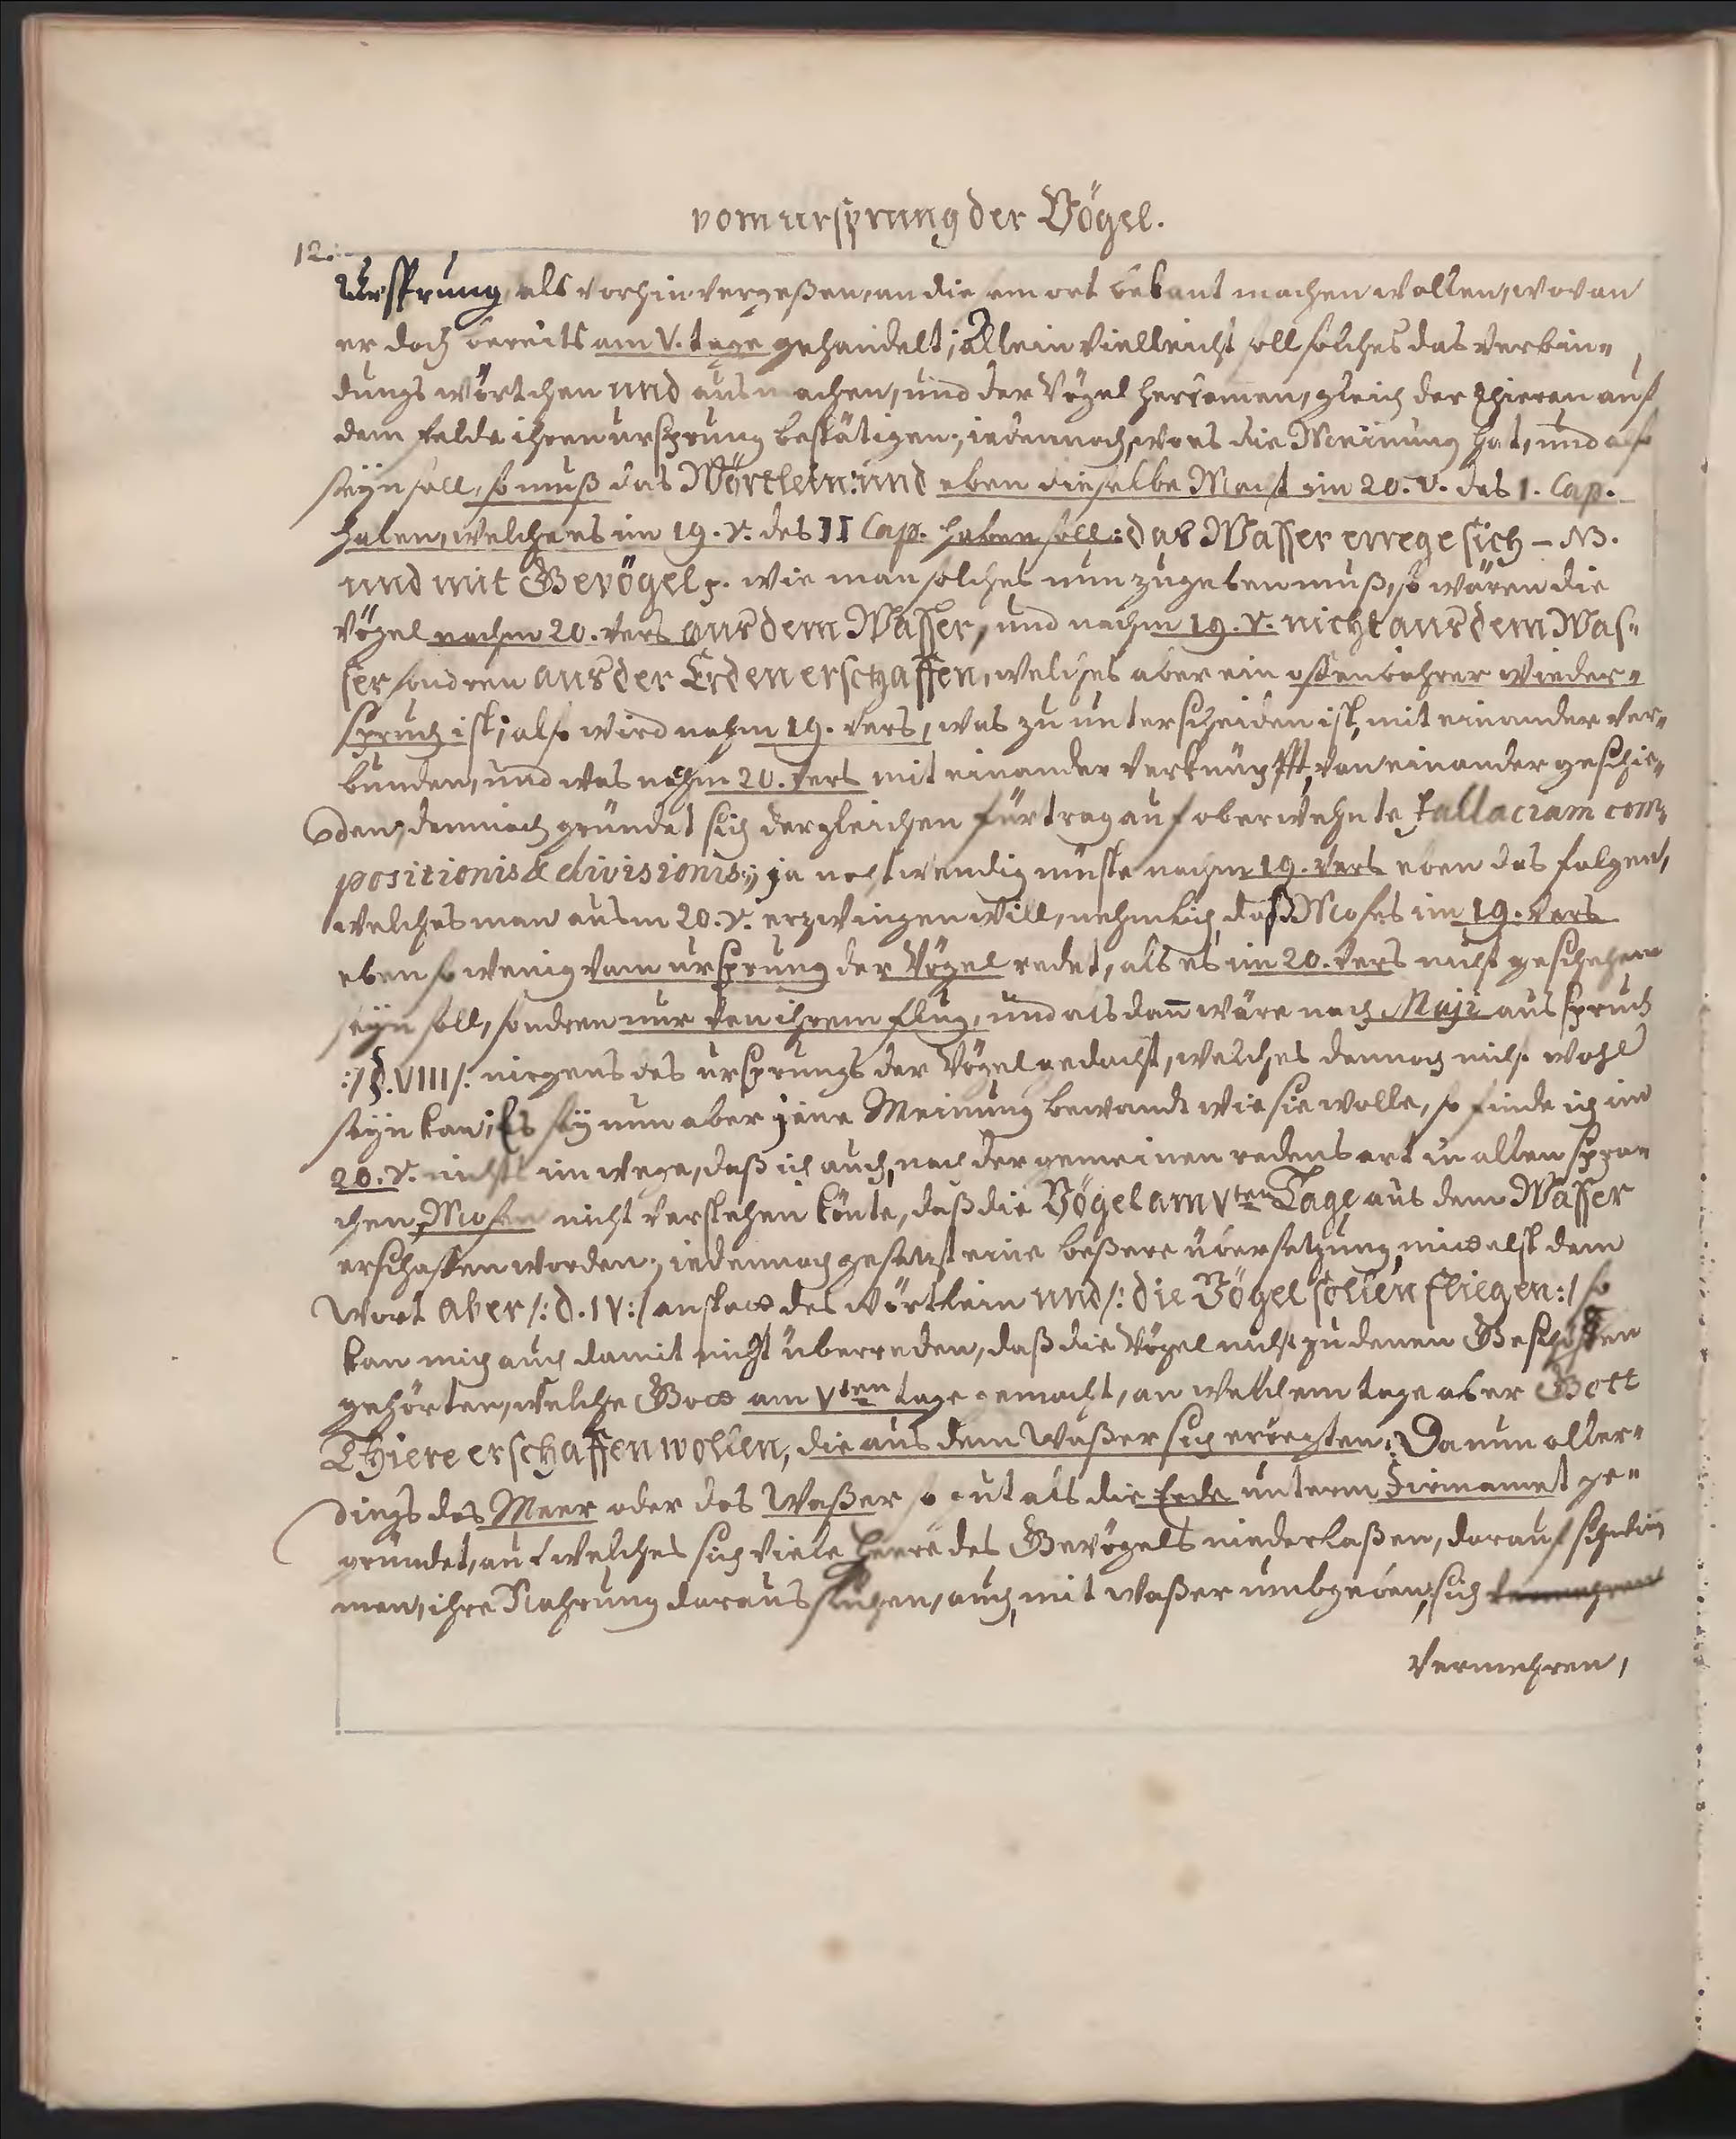 vom ursprung der Vögel.
12.
Ursprung, als vorhin vergeßen, an die em ort bekant machen wollen, wovon
er doch bereits am V. tage gehandelt; Allein vielleicht soll solches das verbin„
dungs wörtchen und ausmachen, und der Vögel herkomen, gleich der thieren auf
dem felde ihren ursprung bestätigen; iedennoch, wo es die Meinung hat, und also
seyn soll, so muß das Wörtlein: und eben dieselbe Macht im 20. v. des 1. Cap.
haben, welche es im 19. v. des II Cap. haben soll: das Wasser errege sich – NB.
und mit Gevögel p. wie man solches nun zugeben muß, so wären die
Vögel nachm 20. vers aus dem Wasser, und nachm 19. v. nicht aus dem Was„
ser sondren aus der Erden erschaffen, welches aber ein offenbahrer wieder„
spruch ist; also wird nachm 19. vers, was zu unterscheiden ist, mit einander ver„
bunden, und was nachm 20. vers mit einander verknüpfft, von einander geschie„
den; demnach gründet sich dergleichen fürtrag auf oberwehnte fallaciam com„
positionis & divisionis; ja nothwendig müste nachm 19. vers eben das folgen,
welches man ausm 20. v. erzwingen will, nehmlich, daß Moses im 19. vers
eben so wenig vom ursprung der Vögel redet, als es im 20. vers nicht geschehen
seyn soll, sondren nur von ihrem flug, und als dan̄ wäre nach Maji ausspruch
:/ §. VIII /: nirgens des ursprungs der Vögel gedacht, welches dennoch nicht wohl
seyn kan; Es sey nun aber jene Meinung bewandt wie sie wolle, so finde ich im
20. v. nichts im wege, daß ich auch, nach der gemeinen redens art in allen spra„
chen, Mosen nicht verstehen könte, daß die Vögel am Vten Tage aus dem Wasser
erschaffen worden; iedennoch gesetzt eine beßere übersetzung mittelst dem
Wort aber /: d. IV :/ anstatt des wörtlein und /: die Vögel sollen fliegen :/ so
kan mich auch damit nicht überreden, daß die Vögel nicht zu denen Geschöpfen
gehörten, welche Gott am Vten tage gemacht, an welchem tage aber Gott
Thiere erschaffen wollen, die aus dem Waßer sich erregten. Da nun aller„
dings das Meer oder das Waßer so gut als die Erde unterm Firmament ge„
gründet, auf welches sich viele Heere des Gevögels niederlaßen, darauf schwim
men, ihre Nahrung daraus suchen, auch, mit waßer umbgeben, sich
vermehren,